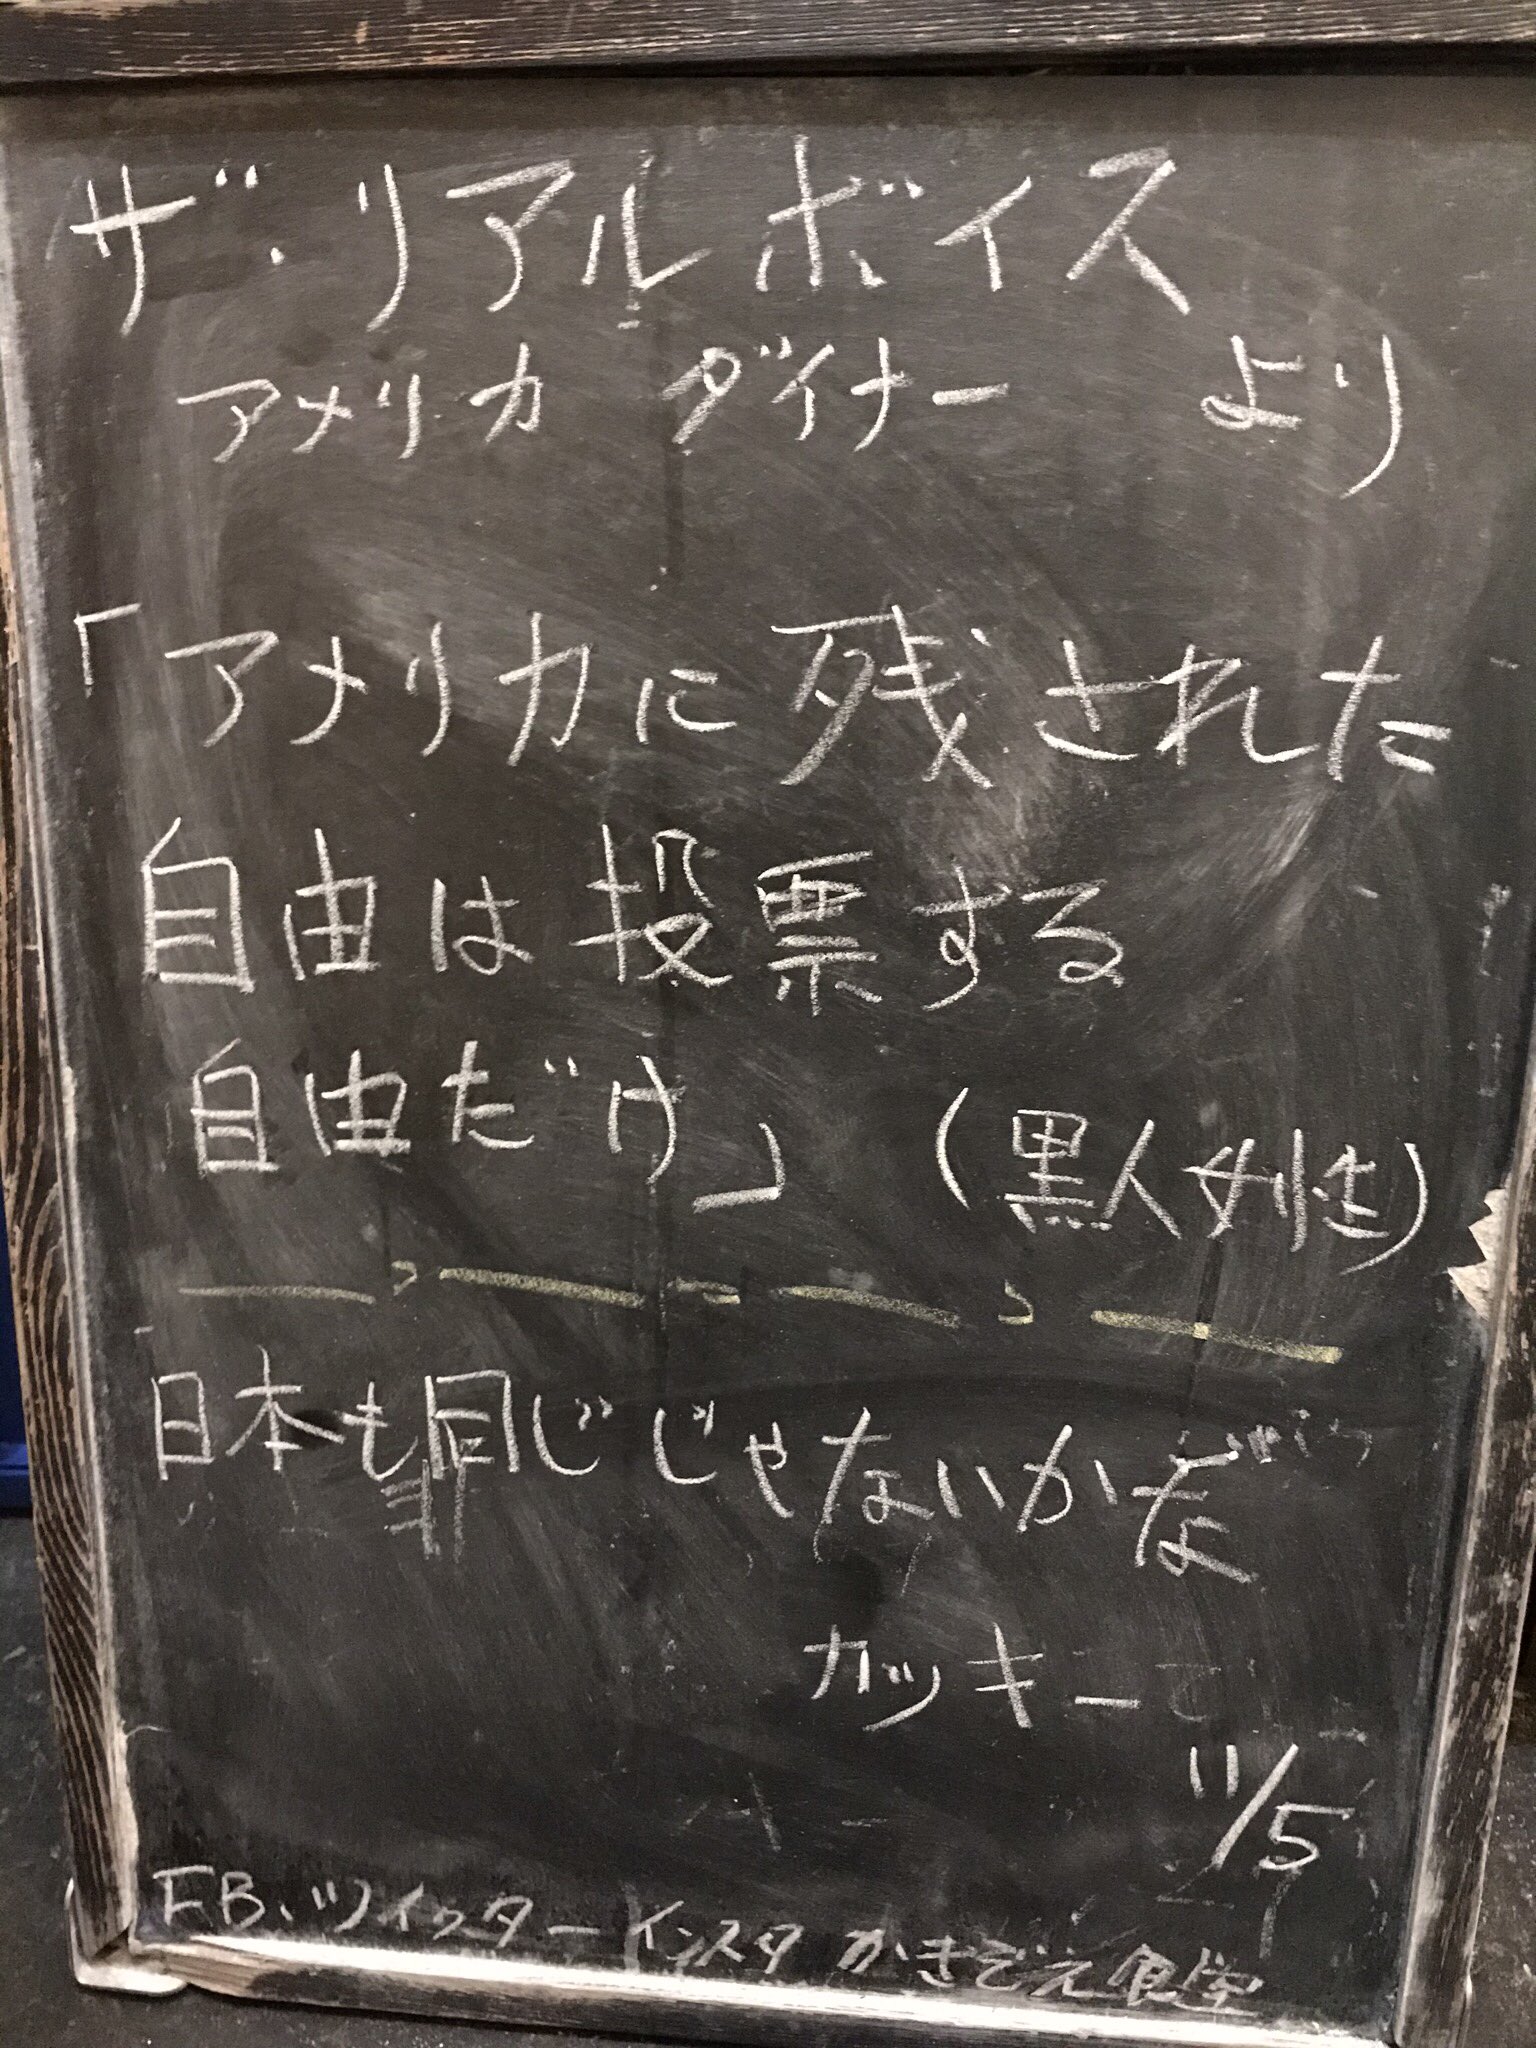 ザ・リアルボイス
アメリカ ダイナー より
「アメリカに残された
自由は投票する
自由だけ」 (黒人女性)
日本も同じじゃないかなよ
カッキー
11/5
FB.ツイッター インスタ かきでえ食堂